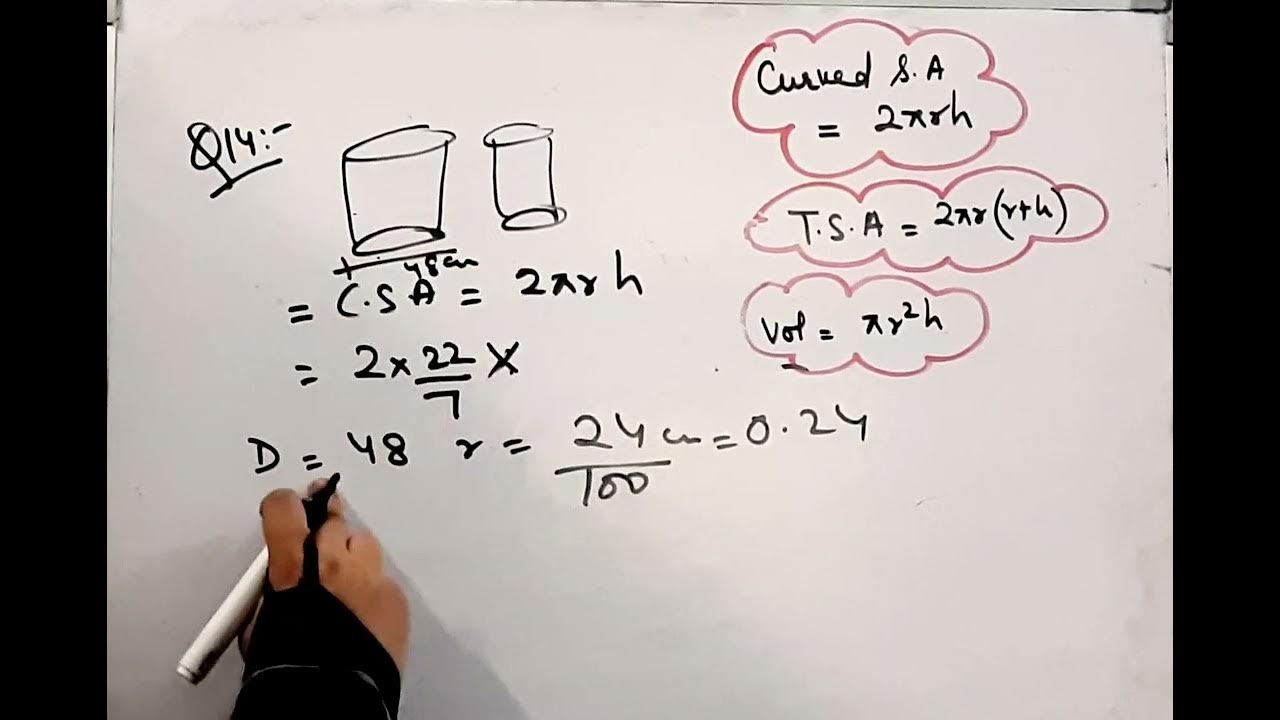 Q14:-
48cm
= C.S A = 2πrh
= 2 × 22/7 ×
D = 48 r = 24cm/100 = 0.24
Curved S.A
= 2πrh
T.S.A = 2πr(r+h)
Vol = πr²h